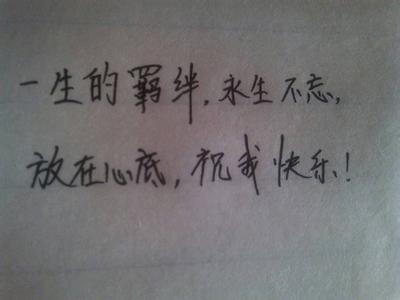 一生的羁绊，永生不忘，
放在心底，祝我快乐！